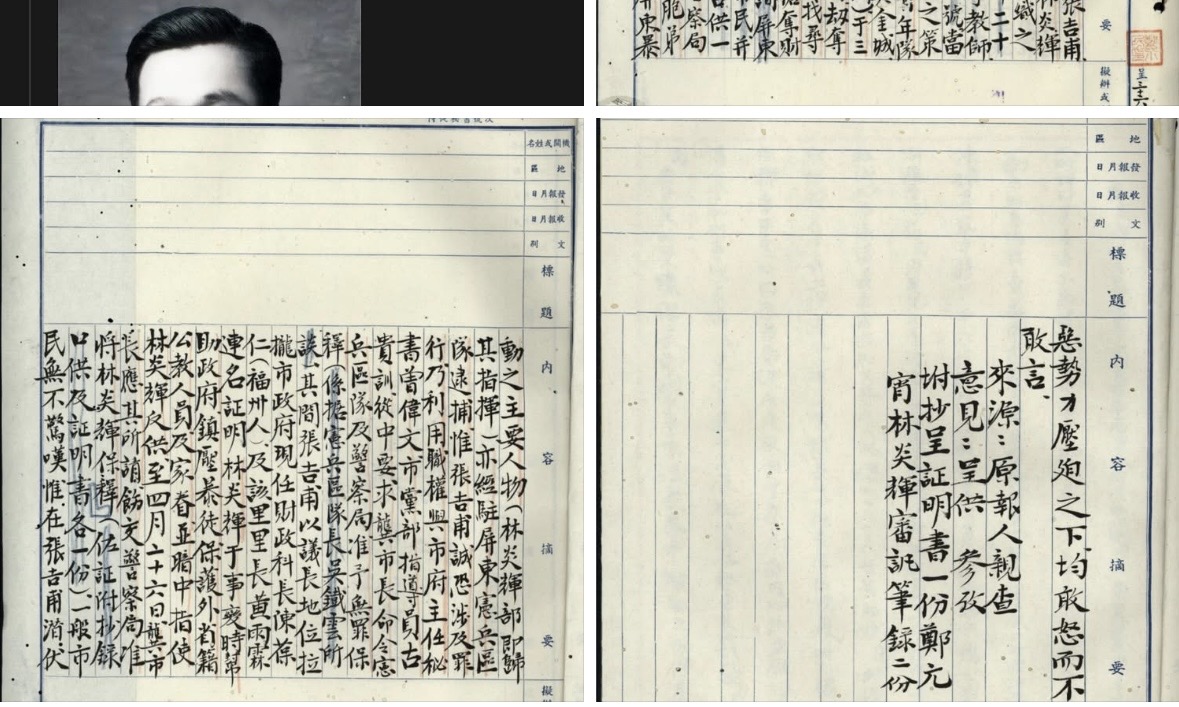 呈三六
要
擬辦或
張吉甫
林炎輝
織之
二十
教師
號當
之策
青年隊
金城
）于三
劫奪
找尋
奪財
屏東
民并
供一
察局
胞弟
屏東暴
機關或姓名
地區
發報月日
收報月日
文別
標題
內容摘要
擬辦
動之主要人物（林炎輝部即歸
其指揮）亦經駐屏東憲兵區
隊逮捕惟張吉甫誠恐涉及罪
行乃利用職權與市府主任秘
書曾偉文市黨部指導員古
貴訓從中要求龔市長命令憲
兵區隊及警察局准予無罪保
釋（係據憲兵區隊長吳鐵雲所
談）其間張吉甫以議長地位拉
攏市政府現任財政科長陳葆
仁（福州人）及該里里長黃雨霖
連名証明林炎輝于事變時幫
助政府鎮壓暴徒保護外省籍
公教人員及家眷並暗中指使
林炎輝反供至四月二十六日龔市
長應其所請飭交警察局准
將林炎輝保釋（佐証附抄錄
口供及証明書各一份）一般市
民無不驚嘆惟在張吉甫潛伏
地區
發報月日
收報月日
文別
標題
內容摘要
惡勢力壓迫之下均敢怒而不
敢言、
來源：原報人親查
意見：呈供 參攷
坿抄呈証明書一份鄭元
宵林炎輝審訊筆錄二份